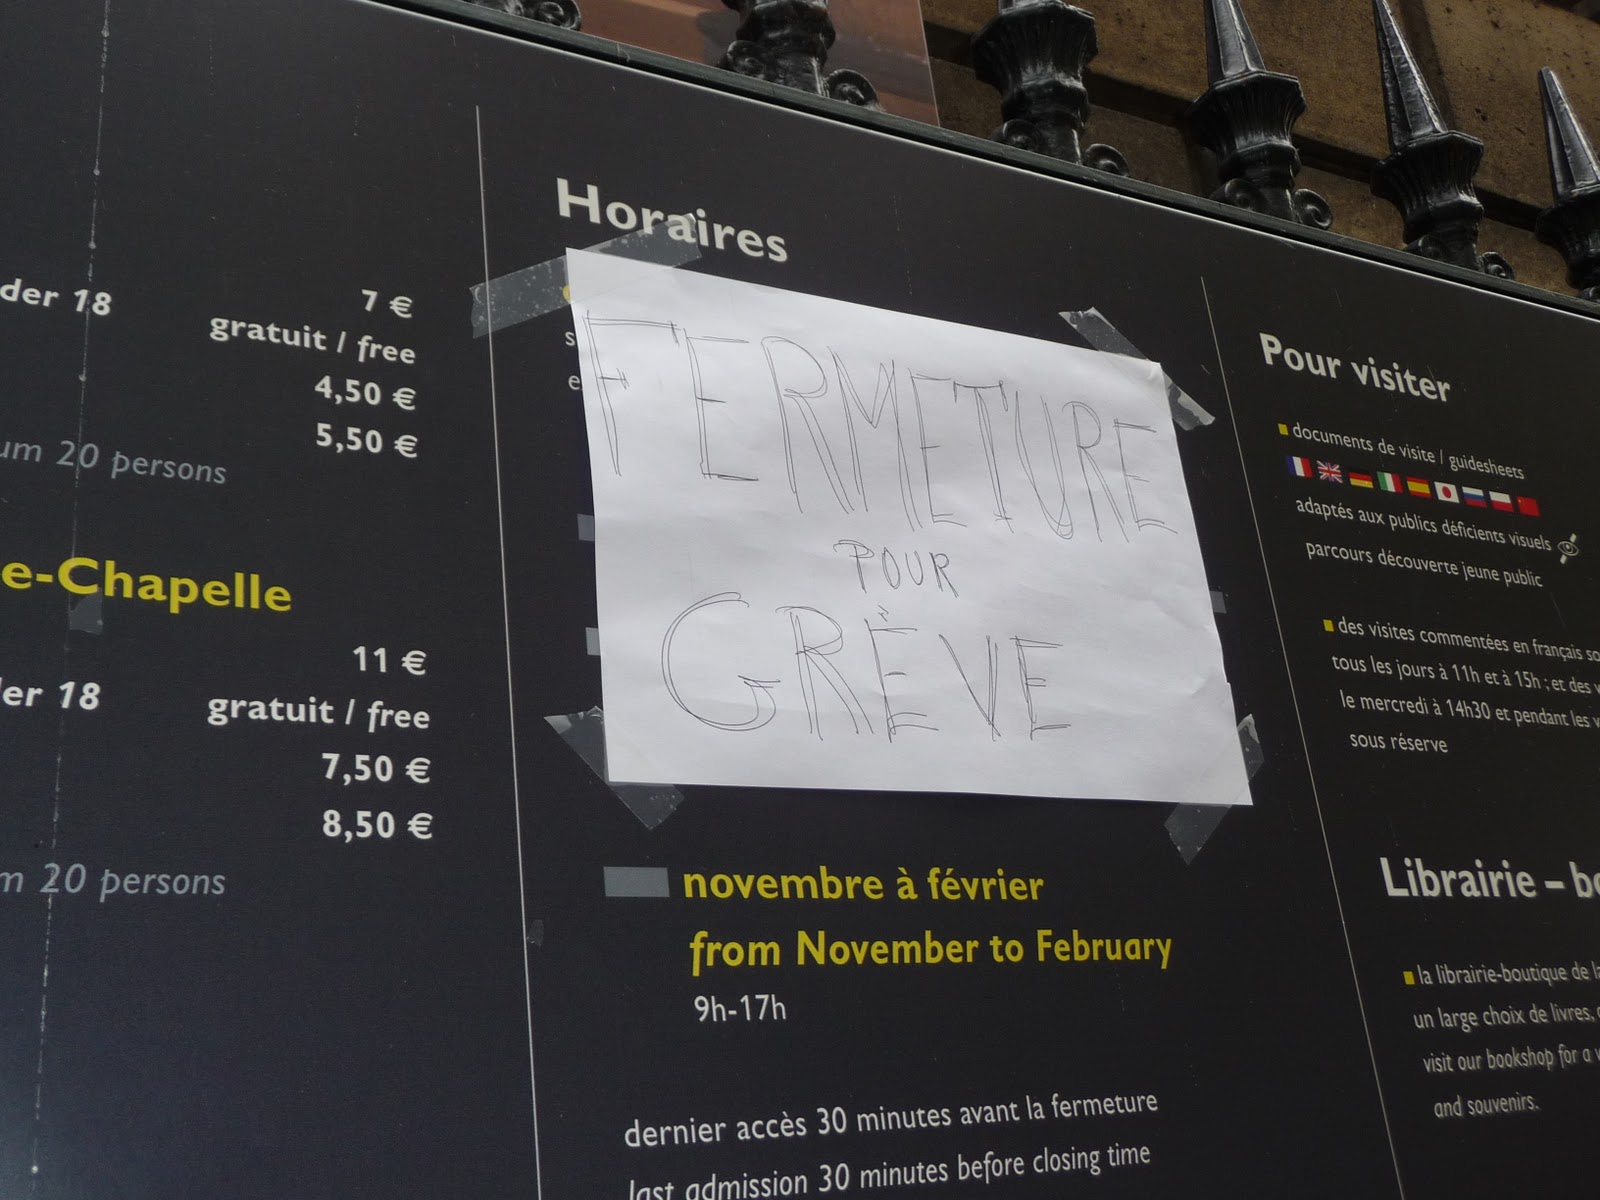 der 18
7 €
gratuit / free
4,50 €
5,50 €
um 20 persons
e-Chapelle
11 €
er 18
gratuit / free
7,50 €
8,50 €
m 20 persons
Horaires
FERMETURE
POUR
GRÈVE
novembre à février
from November to February
9h-17h
dernier accès 30 minutes avant la fermeture
last admission 30 minutes before closing time
Pour visiter
documents de visite / guidesheets
adaptés aux publics déficients visuels
parcours découverte jeune public
des visites commentées en français so
tous les jours à 11h et à 15h ; et des v
le mercredi à 14h30 et pendant les v
sous réserve
Librairie – bo
la librairie-boutique de la
un large choix de livres,
visit our bookshop for a
and souvenirs.